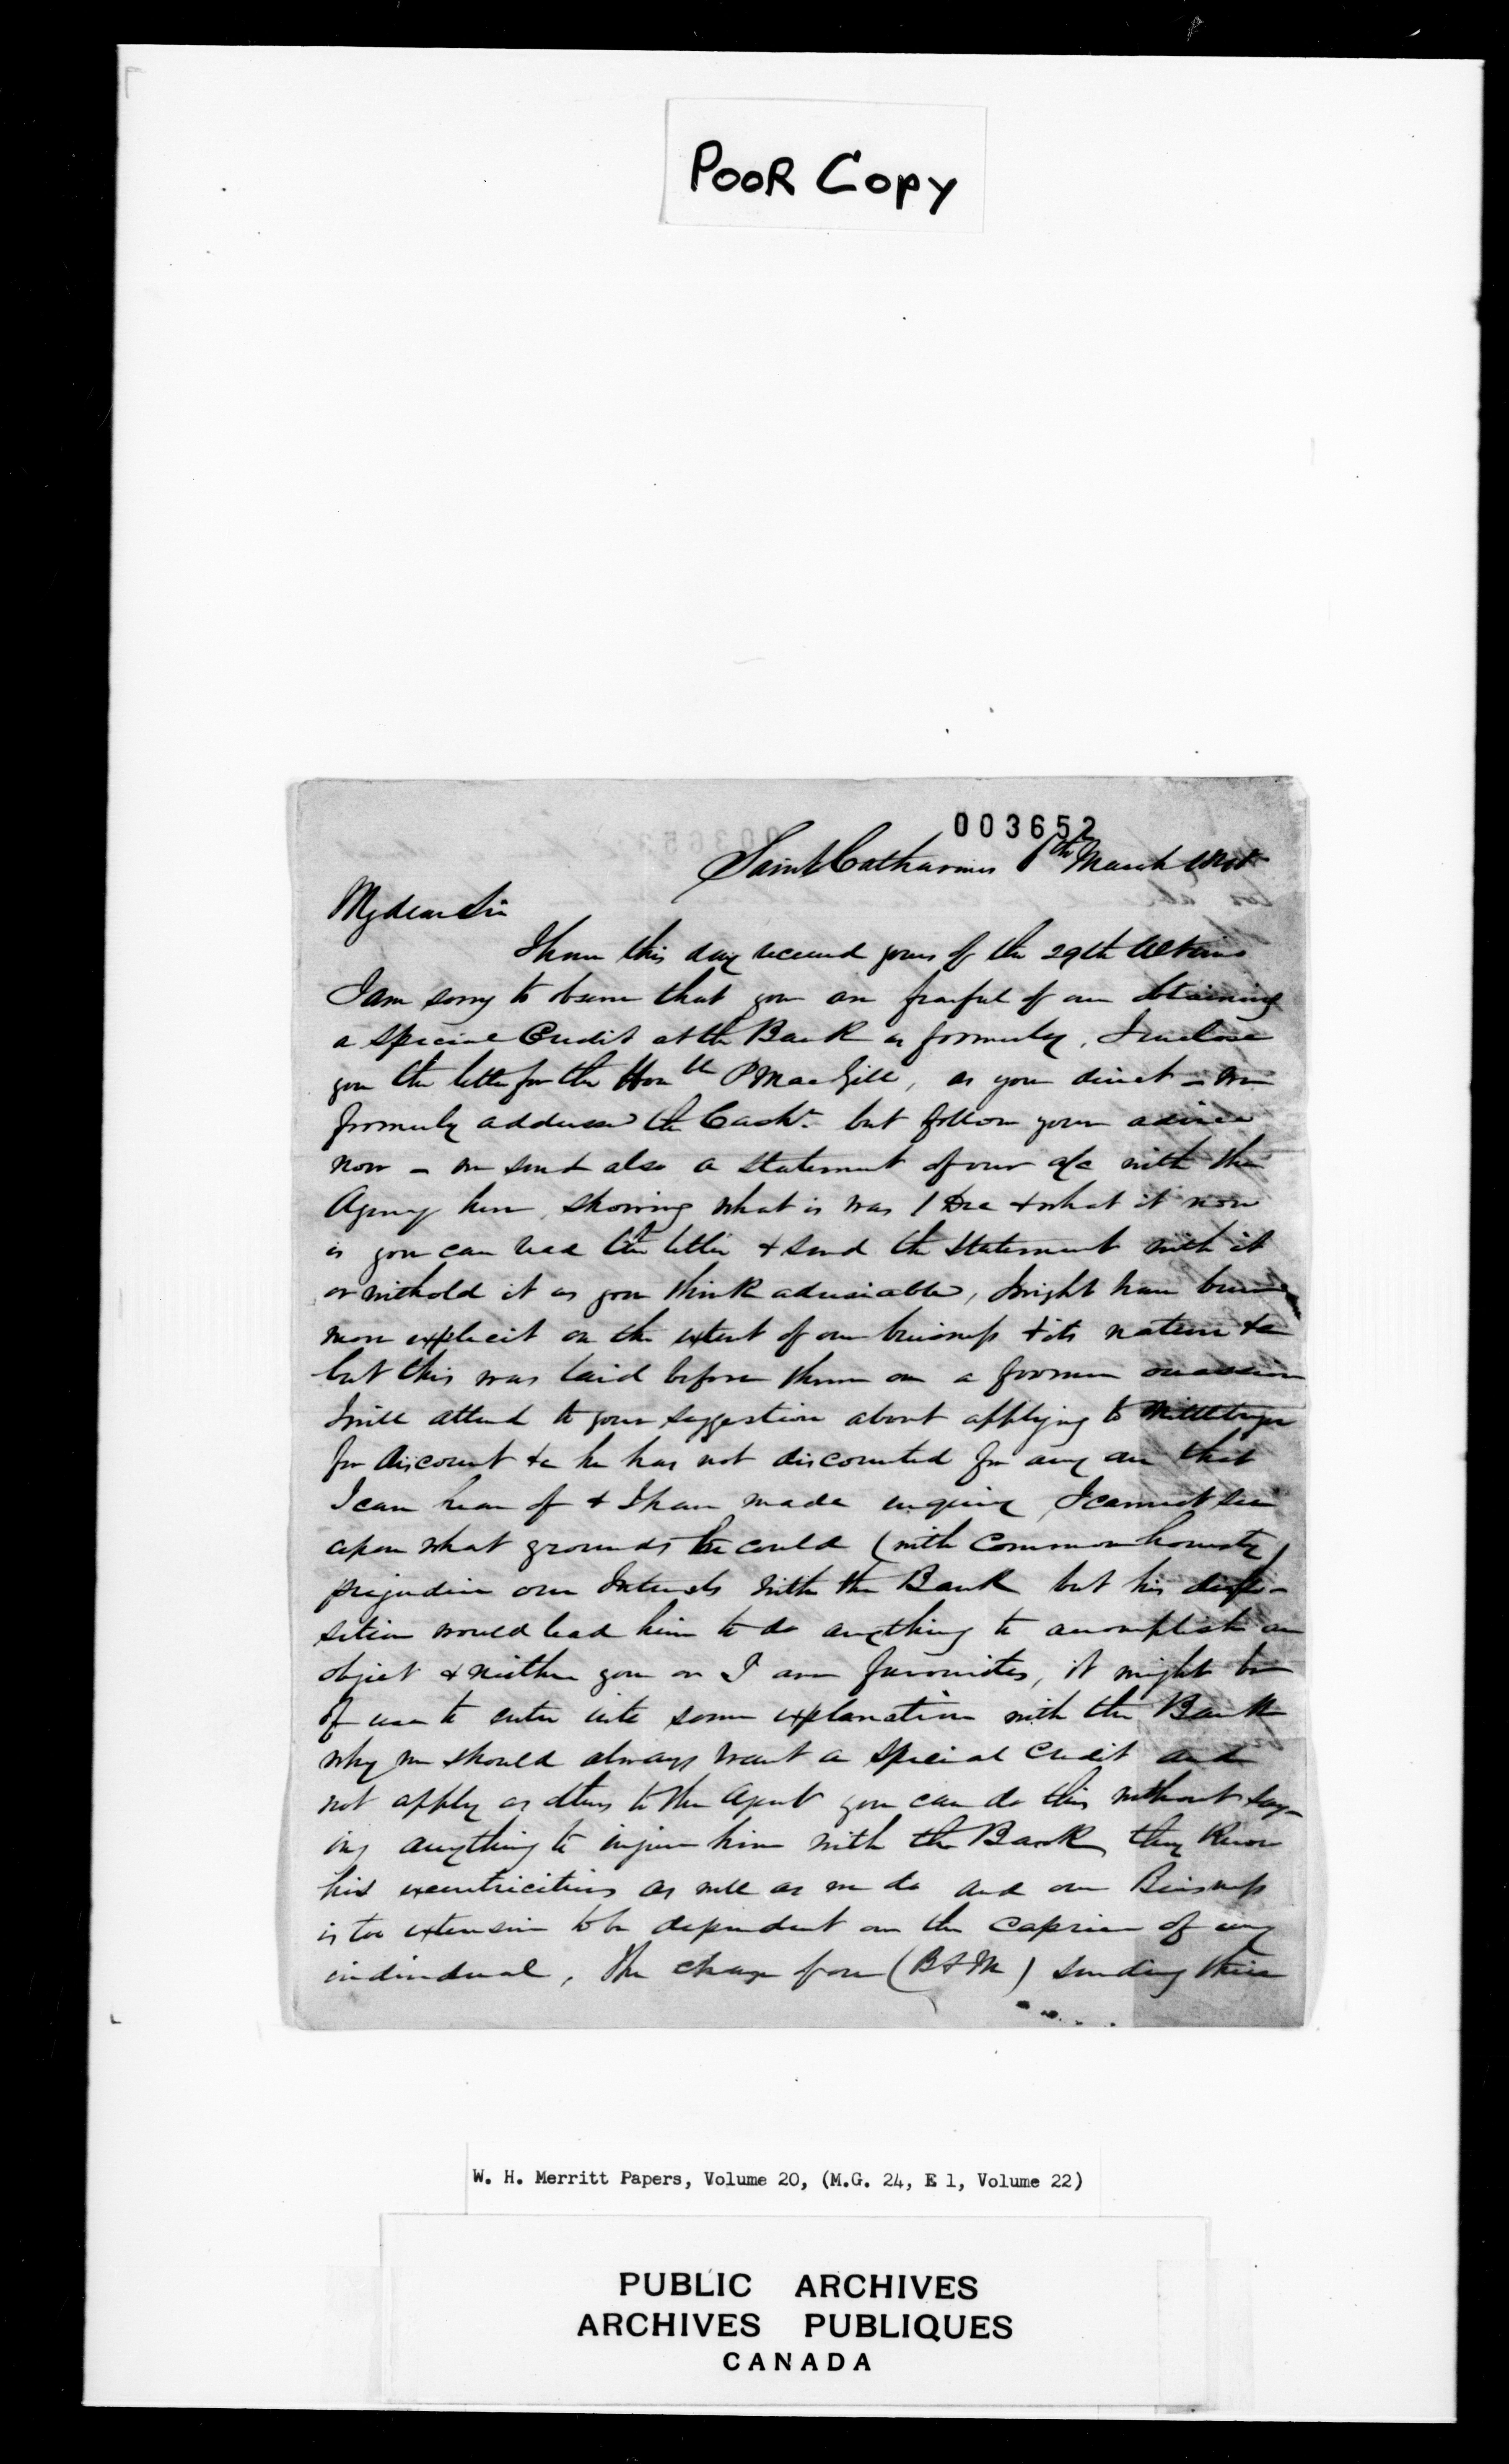 POOR COPY
003652
Saint Catharines 6th March
My dear Sir
I have this day received yours of the 29th Ultimo
I am sorry to observe that you are fearful of our obtaining
a special Credit at the Bank as formerly, I inclose
you the letter for the Honble P MacGill, as you direct - we
formerly addressed the Cashr. but follow your advice
now - we send also a statement of our a/c with the
Agency here, showing what is was 1 Dec & what it now
is you can read the letter & send the statement with it
or withold it as you think advisiable, I might have been
more explicit on the extent of our buisness & its nature &c
but this was laid before them on a former occassion
I will attend to your suggestion about applying to
for discount &c he has not discounted for any one that
I can hear of & I have made enquiry I cannot see
upon what grounds he could (with common honesty)
prejudice our Interests with the Bank but his dispo-
sition would lead him to do anything to accomplish an
object & neither you or I are favourites, it might be
of use to enter into some explanation with the Bank
why we should always want a special credit and
not apply as others to the Agent you can do this without say-
ing anything to injure him with the Bank, they know
his excentricities as well as we do and our Buisness
is too extensive to be dependent on the caprice of any
individual, the charge from (B & M) sending their
W. H. Merritt Papers, Volume 20, (M.G. 24, E 1, Volume 22)
PUBLIC ARCHIVES
ARCHIVES PUBLIQUES
CANADA